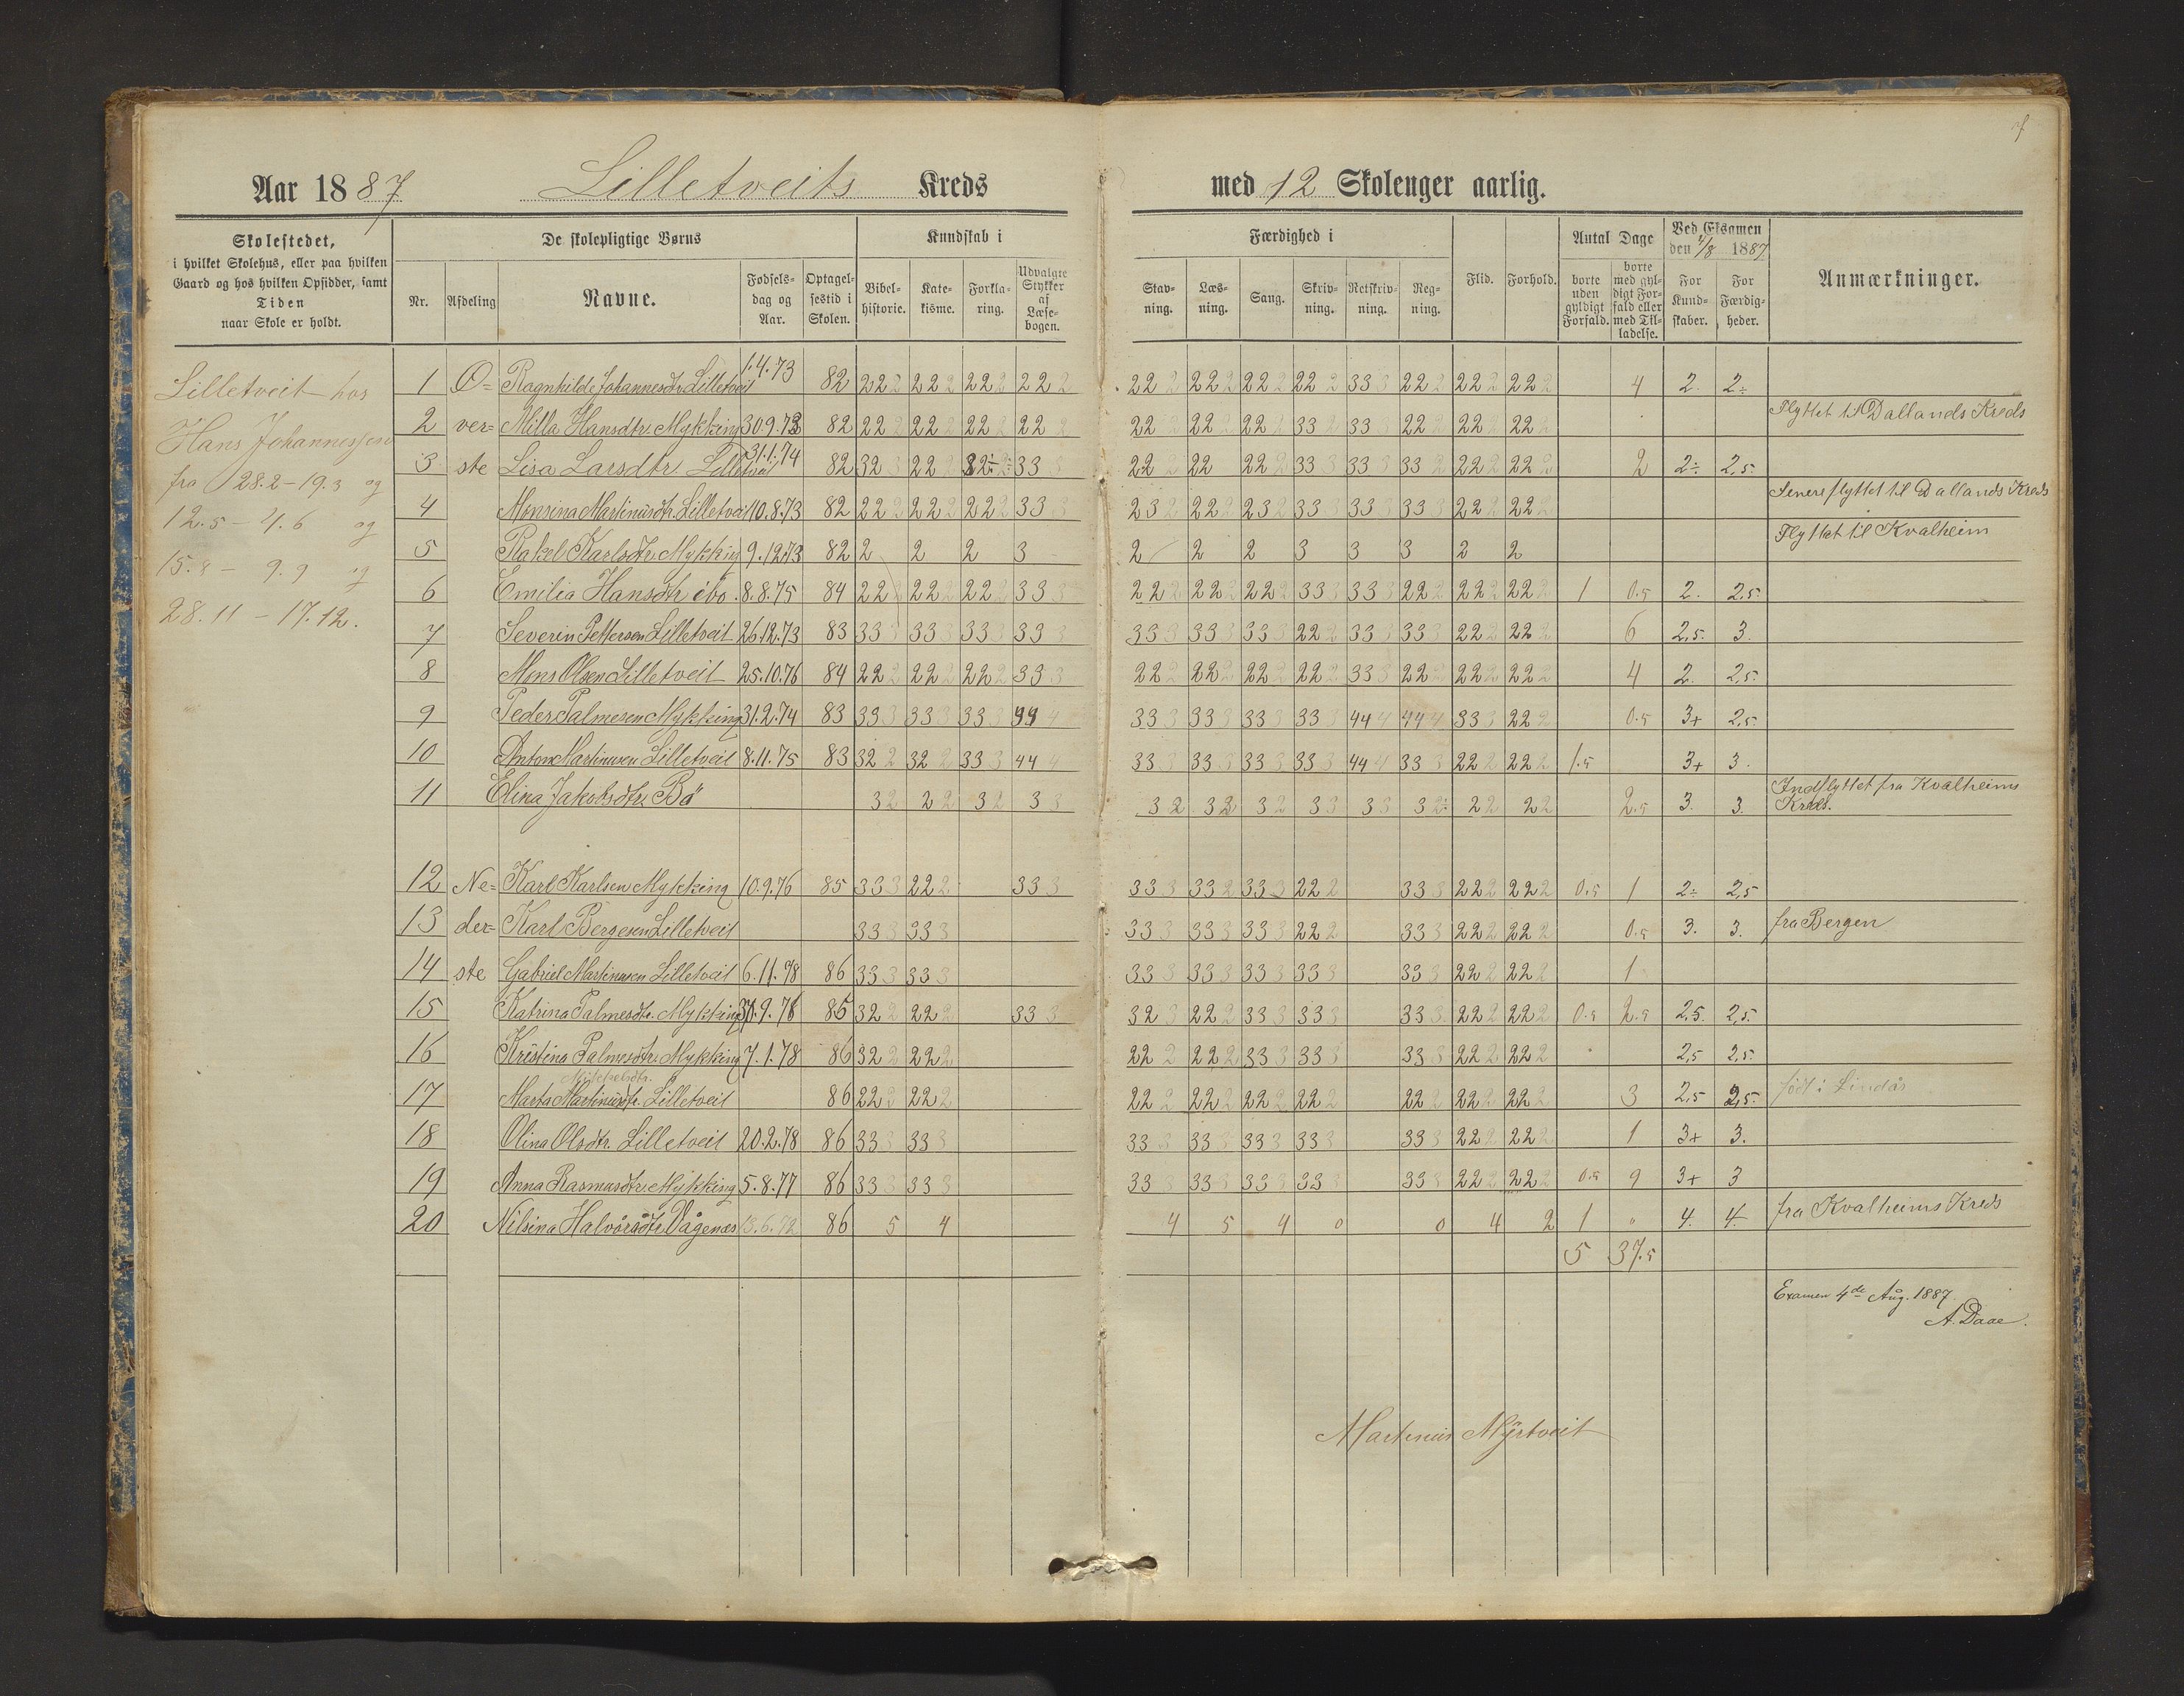 Aar 1887 Lilletveits Kreds med 12 Skoleuger aarlig.
Skolestedet,
i hvilket Skolehus, eller paa hvilken
Gaard og hos hvilken Opsidder, samt
Tiden
naar Skole er holdt.
De skolepligtige Børns
Nr. Afdeling Navne. Fødsels-dag og Aar. Optagel-sestid i Skolen.
Kundskab i
Bibel-historie. Kate-kisme. Forkla-ring. Udvalgte Stykker af Læse-bogen.
Færdighed i
Stav-ning. Læs-ning. Sang. Skriv-ning. Retskriv-ning. Reg-ning.
Flid. Forhold.
Antal Dage
borte uden gyldigt Forfald. borte med gyl-digt For-fald eller med Til-ladelse.
Ved Eksamen
den 4/8 1887
For Kund-skaber. For Færdig-heder.
Anmærkninger.
Lilletveit hos
Hans Johannessen
fra 28.2-19.3 og
12.5 - 4.6 og
15.8 - 9.9 og
28.11 - 17.12.
1 Ø= Ragnhilde Johannesdtr Lilletveit 1.4.73 82 222 222 222 222 222 222 222 222 333 222 222 222 4 2. 2÷
2 ver= Milla Hansdtr. Mykking 30.9.73 82 222 222 222 222 222 222 222 332 333 222 222 222 Flyttet til Dallands Kreds
3 ste Lisa Larsdtr. Lilletveit 31.1.74 82 323 222 333 222 22 222 333 333 332 222 222 2 2÷ 2,5.
4 Monsina Martinusdtr. Lilletveit 10.8.73 82 222 222 222 333 232 222 232 333 333 333 222 222 Senere flyttet til Dallands Kreds
5 Rakel Karlsdtr. Mykking 9.12.73 82 2 2 2 3 2 2 2 3 3 3 2 2 Flyttet til Kvalheim
6 Emilia Hansdtr ibo. 8.8.75 84 222 222 222 333 222 222 333 333 222 222 222 1 0.5 2. 2,5.
7 Severin Pettersen Lilletveit 26.12.73 83 333 333 333 333 333 333 333 222 333 333 222 222 6 2,5. 3.
8 Mons Olsen Lilletveit 25.10.76 84 222 222 222 333 222 222 222 222 333 222 222 222 4 2. 2,5.
9 Peder Palmesen Mykking 31.2.74 83 333 333 333 444 333 333 333 333 444 444 333 222 0.5 3+ 2,5.
10 Anton Martinusen Lilletveit 8.11.75 83 322 322 333 444 333 333 333 333 444 333 222 222 1.5 3+ 3.
11 Elina Jakobsdtr. Bö 32 22 32 33 32 32 32 33 33 32 22 22 2.5 3. 3. Indflyttet fra Kvalheims
Kreds.
12 Ne= Karl Karlsen Mykking 10.9.76 85 333 222 333 333 332 333 222 333 222 222 0.5 1 2÷ 2,5
13 der= Karl Bergesen Lilletveit 333 333 333 333 333 222 333 222 222 0.5 3. 3. fra Bergen
14 ste Gabriel Martinusen Lilletveit 6.11.78 86 333 333 333 333 333 333 333 222 222 1
15 Katrina Palmesdtr. Mykking 9.76 85 322 222 333 323 222 333 333 333 222 222 0.5 2.5 2,5. 2,5.
16 Kristina Palmesdtr. Mykking 7.1.78 86 322 222 222 222 333 333 333 222 222 2,5 2,5.
Mikkelsdtr.
17 Marta Martinusdtr. Lilletveit 86 222 222 222 222 222 222 222 222 222 3 2,5 2,5. født i Lindås
18 Olina Olsdtr. Lilletveit 20.2.78 86 333 333 333 333 333 333 333 222 222 1 3+ 3.
19 Anna Rasmusdtr. Mykking 5.8.77 86 333 333 333 333 333 333 333 222 222 0.5 9 3+ 3
20 Nilsina Halvorsdtr. Vågenæs 13.6.72 86 5 4 4 5 4 0 0 4 2 1 " 4. 4. fra Kvalheims Kreds
5 37.5
Examen 4de Aug. 1887.
A. Daae.
Martinus Myrtveit